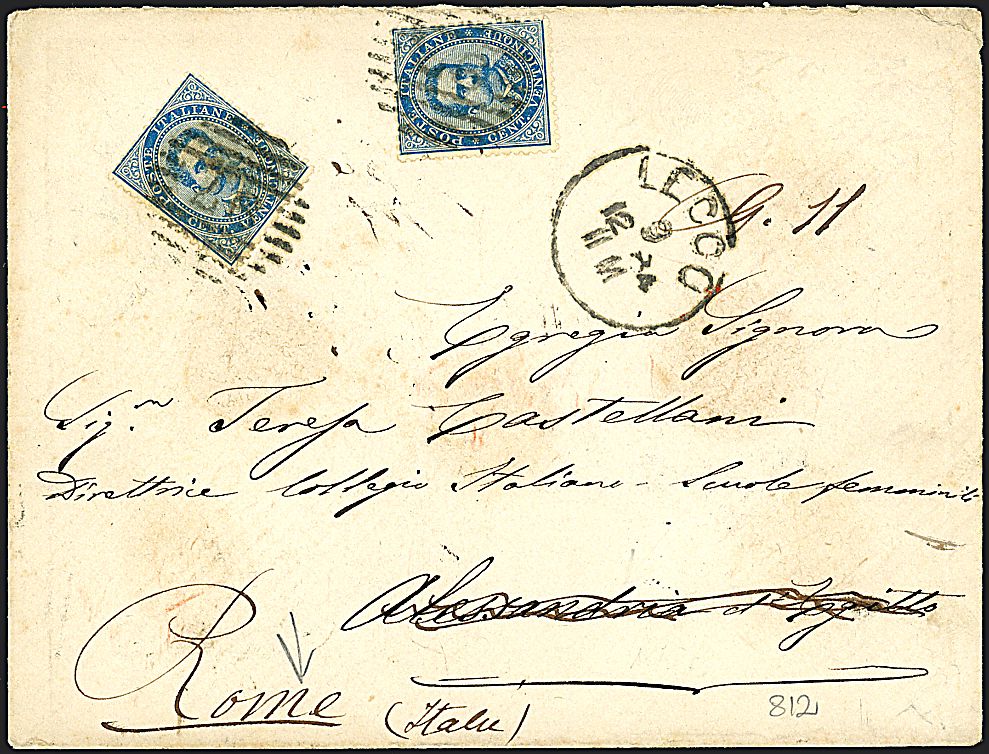 POSTE ITALIANE * CENT. VENTICINQUE *
POSTE ITALIANE * CENT. VENTICINQUE *
LECCO
9
12 74
11 M
G. 11
Egregia Signora
Sig.ra Teresa Castellani
Direttrice Collegio Italiano - Scuole femminili
Alessandria d'Egitto
Rome (Italie)
812